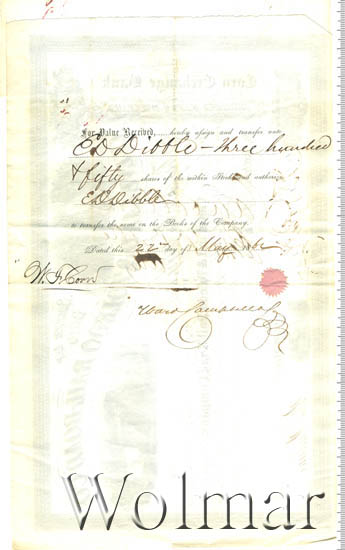 For Value Received, hereby assign and transfer unto
E D Dibble – three hundred
& fifty shares of the within Stock and authorize
E D Dibble
to transfer the same on the Books of the Company.
Dated this 22d day of May 186
W. F. Corn
Ward
Wolmar